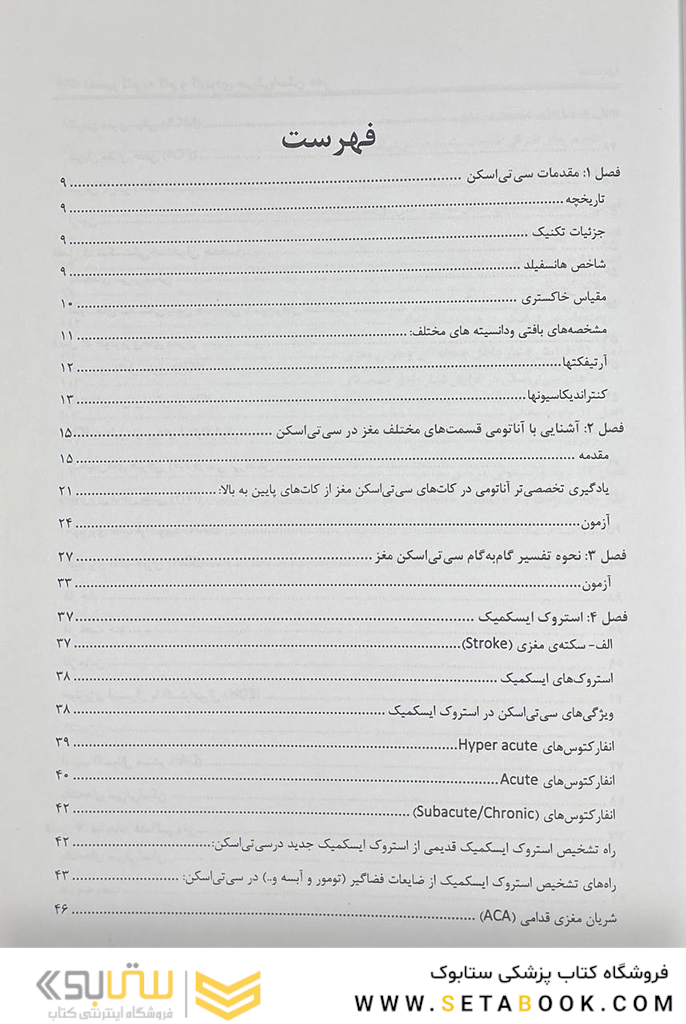 فهرست
فصل ۱: مقدمات سی‌تی‌اسکن ........ ۹
تاریخچه ........ ۹
جزئیات تکنیک ........ ۹
شاخص هانسفیلد ........ ۹
مقیاس خاکستری ........ ۱۰
مشخصه‌های بافتی ودانسیته های مختلف: ........ ۱۱
آرتیفکتها ........ ۱۲
کنتراندیکاسیونها ........ ۱۳
فصل ۲: آشنایی با آناتومی قسمت‌های مختلف مغز در سی‌تی‌اسکن ........ ۱۵
مقدمه ........ ۱۵
یادگیری تخصصی‌تر آناتومی در کات‌های سی‌تی‌اسکن مغز از کات‌های پایین به بالا: ........ ۲۱
آزمون ........ ۲۴
فصل ۳: نحوه تفسیر گام‌به‌گام سی‌تی‌اسکن مغز ........ ۲۷
آزمون ........ ۳۳
فصل ۴: استروک ایسکمیک ........ ۳۷
الف- سکته‌ی مغزی (Stroke) ........ ۳۷
استروک‌های ایسکمیک ........ ۳۸
ویژگی‌های سی‌تی‌اسکن در استروک ایسکمیک ........ ۳۸
انفارکتوس‌های Hyper acute ........ ۳۹
انفارکتوس‌های Acute ........ ۴۰
انفارکتوس‌های (Subacute/Chronic) ........ ۴۲
راه تشخیص استروک ایسکمیک قدیمی از استروک ایسکمیک جدید درسی‌تی‌اسکن: ........ ۴۲
راه‌های تشخیص استروک ایسکمیک از ضایعات فضاگیر (تومور و آبسه و..) در سی‌تی‌اسکن: ........ ۴۳
شریان مغزی قدامی (ACA) ........ ۴۶
فروشگاه کتاب پزشکی ستابوک
WWW.SETABOOK.COM
ستابوک
فروشگاه اینترنتی کتاب